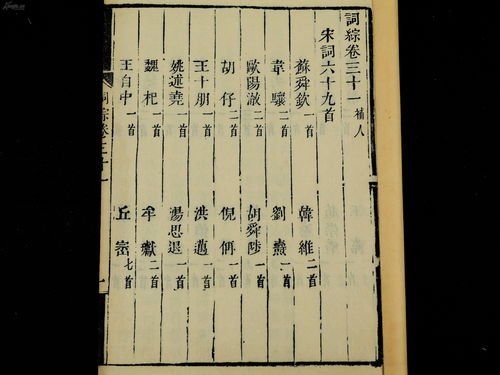 詞綜卷三十一 補人
宋詞六十九首
蘇舜欽一首 韓維二首
韋驤二首 劉㵎一首
歐陽澈二首 胡舜陟一首
胡仔二首 倪偁一首
王十朋一首 洪邁一首
姚述堯一首 湯思退一首
魏杞一首 牟巘二首
王自中一首 丘崈七首
詞綜卷三十一
一